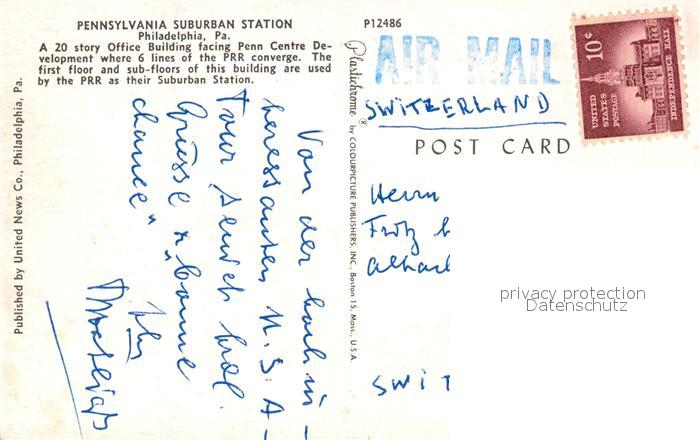 PENNSYLVANIA SUBURBAN STATION
Philadelphia, Pa.
A 20 story Office Building facing Penn Centre De-
velopment where 6 lines of the PRR converge. The
first floor and sub-floors of this building are used
by the PRR as their Suburban Station.
Published by United News Co., Philadelphia, Pa.
Von der hoch in-
teressanten U.S.A-
Tour sende ich
Grüsse & "bonne
chance"
Ihr
P12486
Plastichrome ® by COLOURPICTURE PUBLISHERS, INC., Boston 15, Mass., U.S.A.
AIR MAIL
SWITZERLAND
POST CARD
10¢
UNITED
STATES
POSTAGE
INDEPENDENCE HALL
Herrn
SWIT
privacy protection
Datenschutz